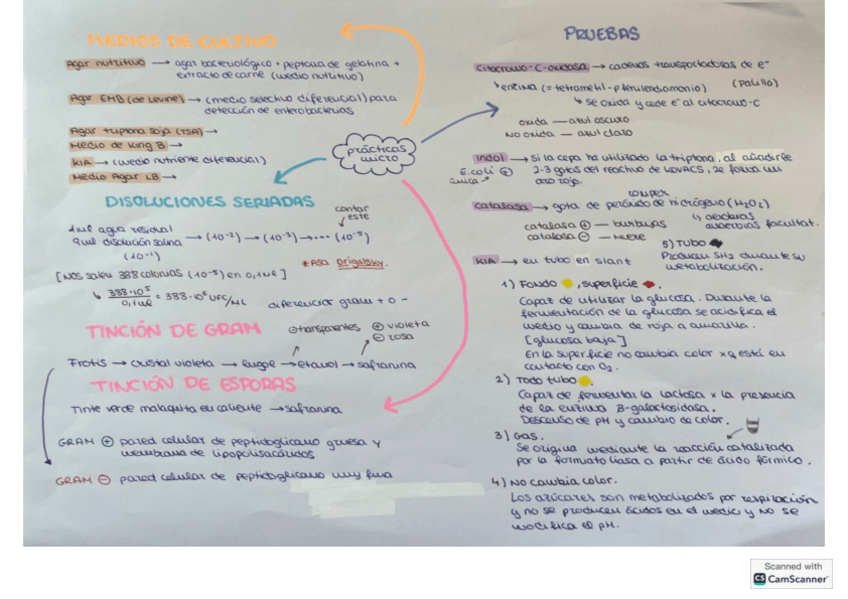 MEDIOS DE CULTIVO
Agar nutritivo → agar bacteriológico + peptona de gelatina +
extracto de carne (medio nutritivo)
Agar EMB (de Levine) → (medio selectivo diferencial) para
detección de enterobacterias
Agar triptona soja (TSA) →
Medio de King B →
KIA → (medio nutriente diferencial)
Medio Agar LB →
prácticas
micro
DISOLUCIONES SERIADAS
contar
este
1ml agua residual
9ml disolución salina → (10⁻²) → (10⁻³) → ... (10⁻⁵)
(10⁻¹)
* Asa Drigalsky.
[Nos salen 388 colonias (10⁻⁵) en 0,1ml]
388·10⁵
0,1ml
= 388·10⁶ UFC/ML
diferenciar gram + o -
TINCIÓN DE GRAM
⊖ transparentes
⊕ violeta
⊖ rosa
Frotis → cristal violeta → lugol → etanol → safranina
TINCIÓN DE ESPORAS
Tinte verde malaquita en caliente → safranina
GRAM ⊕ pared celular de peptidoglicano gruesa y
membrana de lipopolisacáridos
GRAM ⊖ pared celular de peptidoglicano muy fina
PRUEBAS
citocromo-C-oxidasa → cadenas transportadoras de e⁻
enzima (= tetrametil-p-fenilendiamonio) (palillo)
se oxida y cede e⁻ al citocromo-C
oxida — azul oscuro
NO oxida — azul claro
Indol → si la cepa ha utilizado la triptona, al añadirle
E.coli ⊕ 2-3 gotas del reactivo de KOVACS, se forma un
única
aro rojo.
romper
catalasa → gota de peróxido de hidrógeno (H₂O₂)
aerobias
anaerobias facultat.
catalasa ⊕ — burbujas
catalasa ⊖ — muere
5) TUBO
Producen SH₂ durante su
metabolización.
KIA → en tubo en slant
1) Fondo , superficie .
Capaz de utilizar la glucosa. Durante la
fermentación de la glucosa se acidifica el
medio y cambia de rojo a amarillo.
[glucosa baja]
En la superficie no cambia color xq está en
contacto con O₂.
2) Todo tubo .
Capaz de fermentar la lactosa x la presencia
de la enzima B-galactosidasa.
Descenso de pH y cambio de color.
3) Gas.
Se origina mediante la reacción catalizada
por la formiato liasa a partir de ácido fórmico.
4) No cambia color.
Los azúcares son metabolizados por respiración
y no se producen ácidos en el medio y no se
modifica el pH.
Scanned with
CS CamScanner